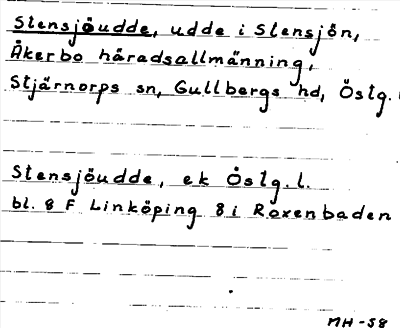 Stensjöudde, udde i Stensjön,
Åkerbo häradsallmänning,
Stjärnorps sn, Gullbergs hd, Östg.
Stensjöudde, ek Östg.l.
bl. 8 F Linköping 8i Roxenbaden
MH-58